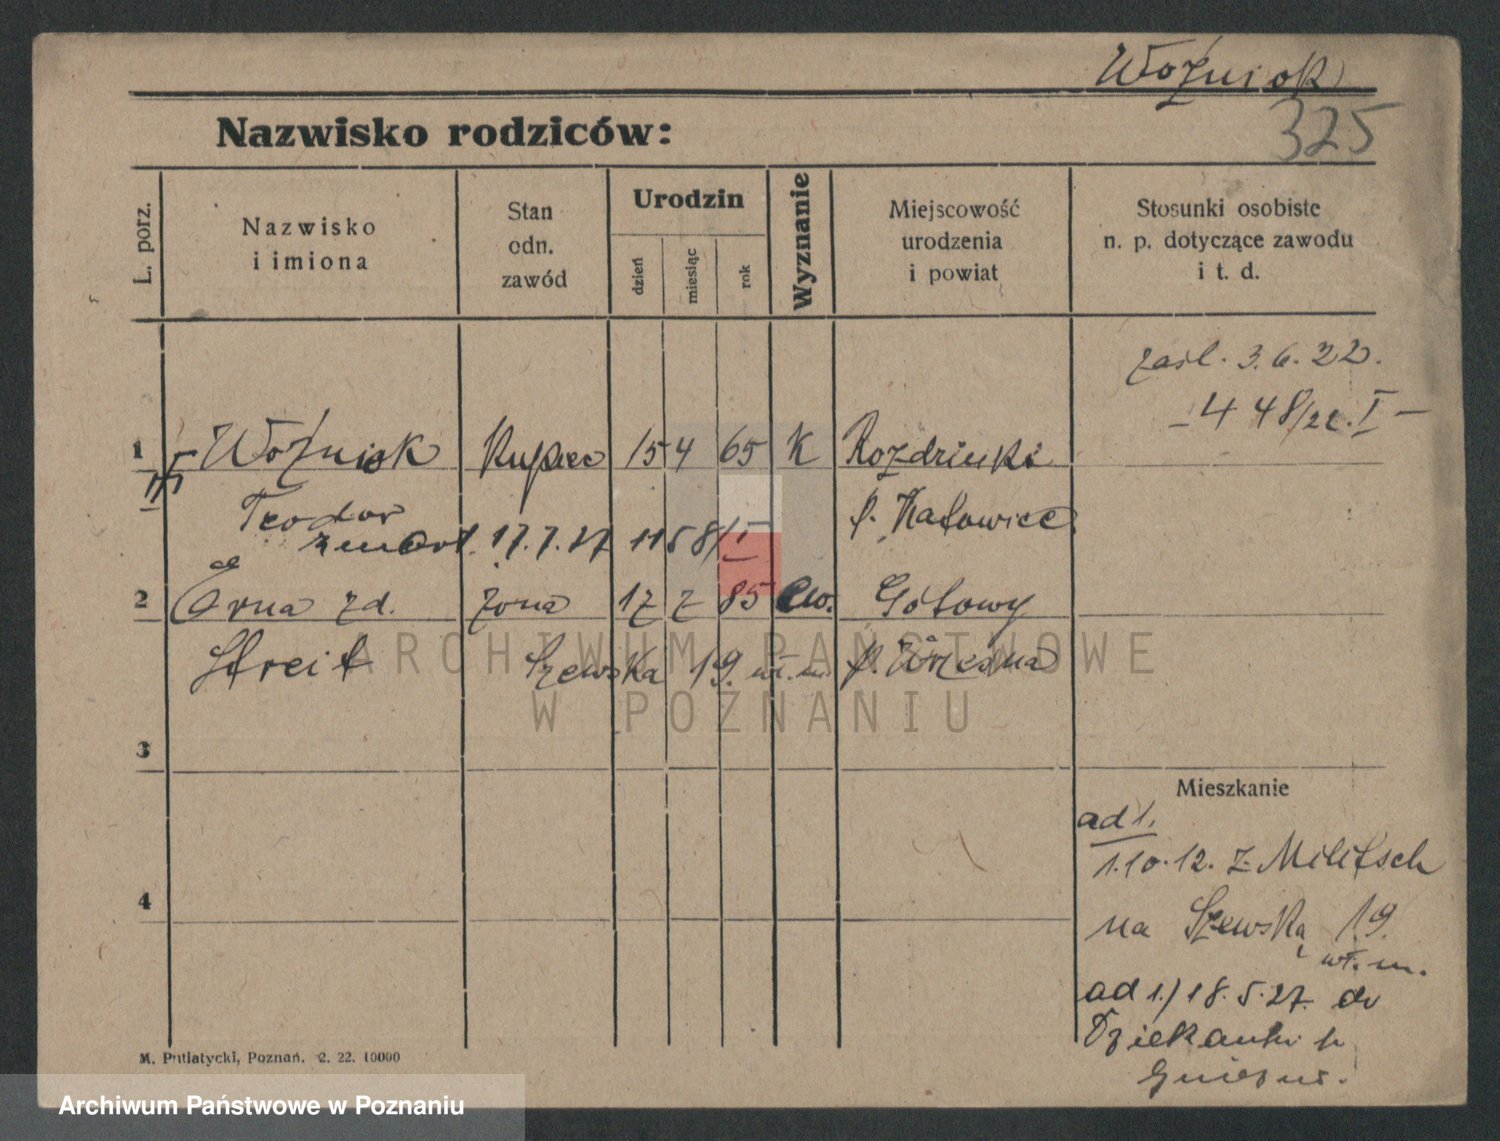 Woźniak
325
Nazwisko rodziców:
L. porz.
Nazwisko
i imiona
Stan
odn.
zawód
Urodzin
dzień
miesiąc
rok
Wyznanie
Miejscowość
urodzenia
i powiat
Stosunki osobiste
n. p. dotyczące zawodu
i t. d.
zaśl. 3.6.22.
- 448/22. I -
1 Woźniak Kupiec 15 4 65 K Rozdzinki
Teodor p. Katowice
zmarł. 17.7.27 1158/I
2 Erna zd. żona 17 7 85 Ew. Gótowy
Streit Szewska 19. wł. m. p. Września
3
Mieszkanie
ad 1.
1.10.12. z Militsch
4
na Szewską 19.
wł. m.
ad 1./ 18.5.27. do
Dziekanki p.
Gniezno.
M. Putiatycki, Poznań. 2. 22. 10000
ARCHIWUM PAŃSTWOWE
W POZNANIU
Archiwum Państwowe w Poznaniu